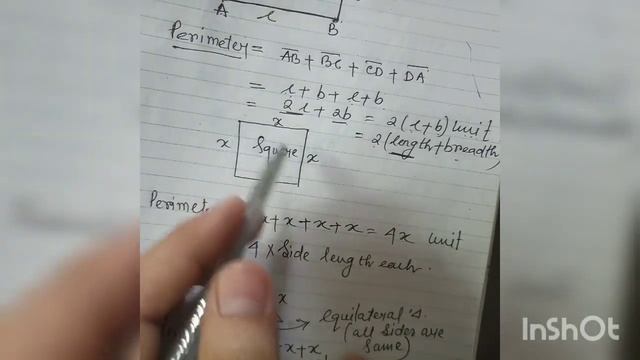 A l B
Perimeter = AB + BC + CD + DA
= l + b + l + b
= 2l + 2b = 2(l+b) unit
= 2(length + breadth)
x
x Square x
x + x + x + x = 4x unit
4 x Side length each.
x
equilateral
(all sides are
x + x, same)
InShOt